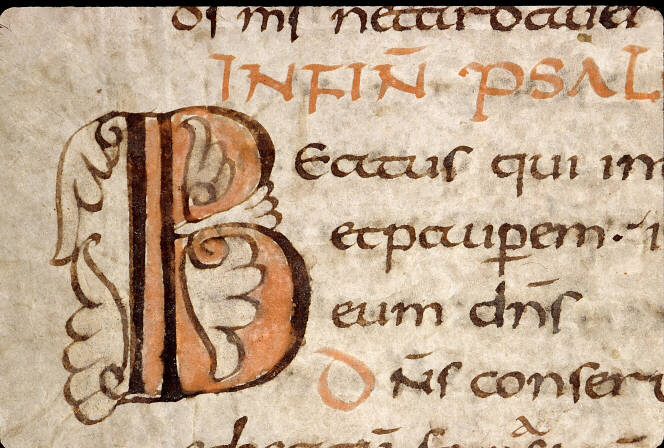 ds ms netardaver
IN FIN̄ PSAL
BEatus qui in
et pauꝑem · i
eum dn̄s
DN̄s conser